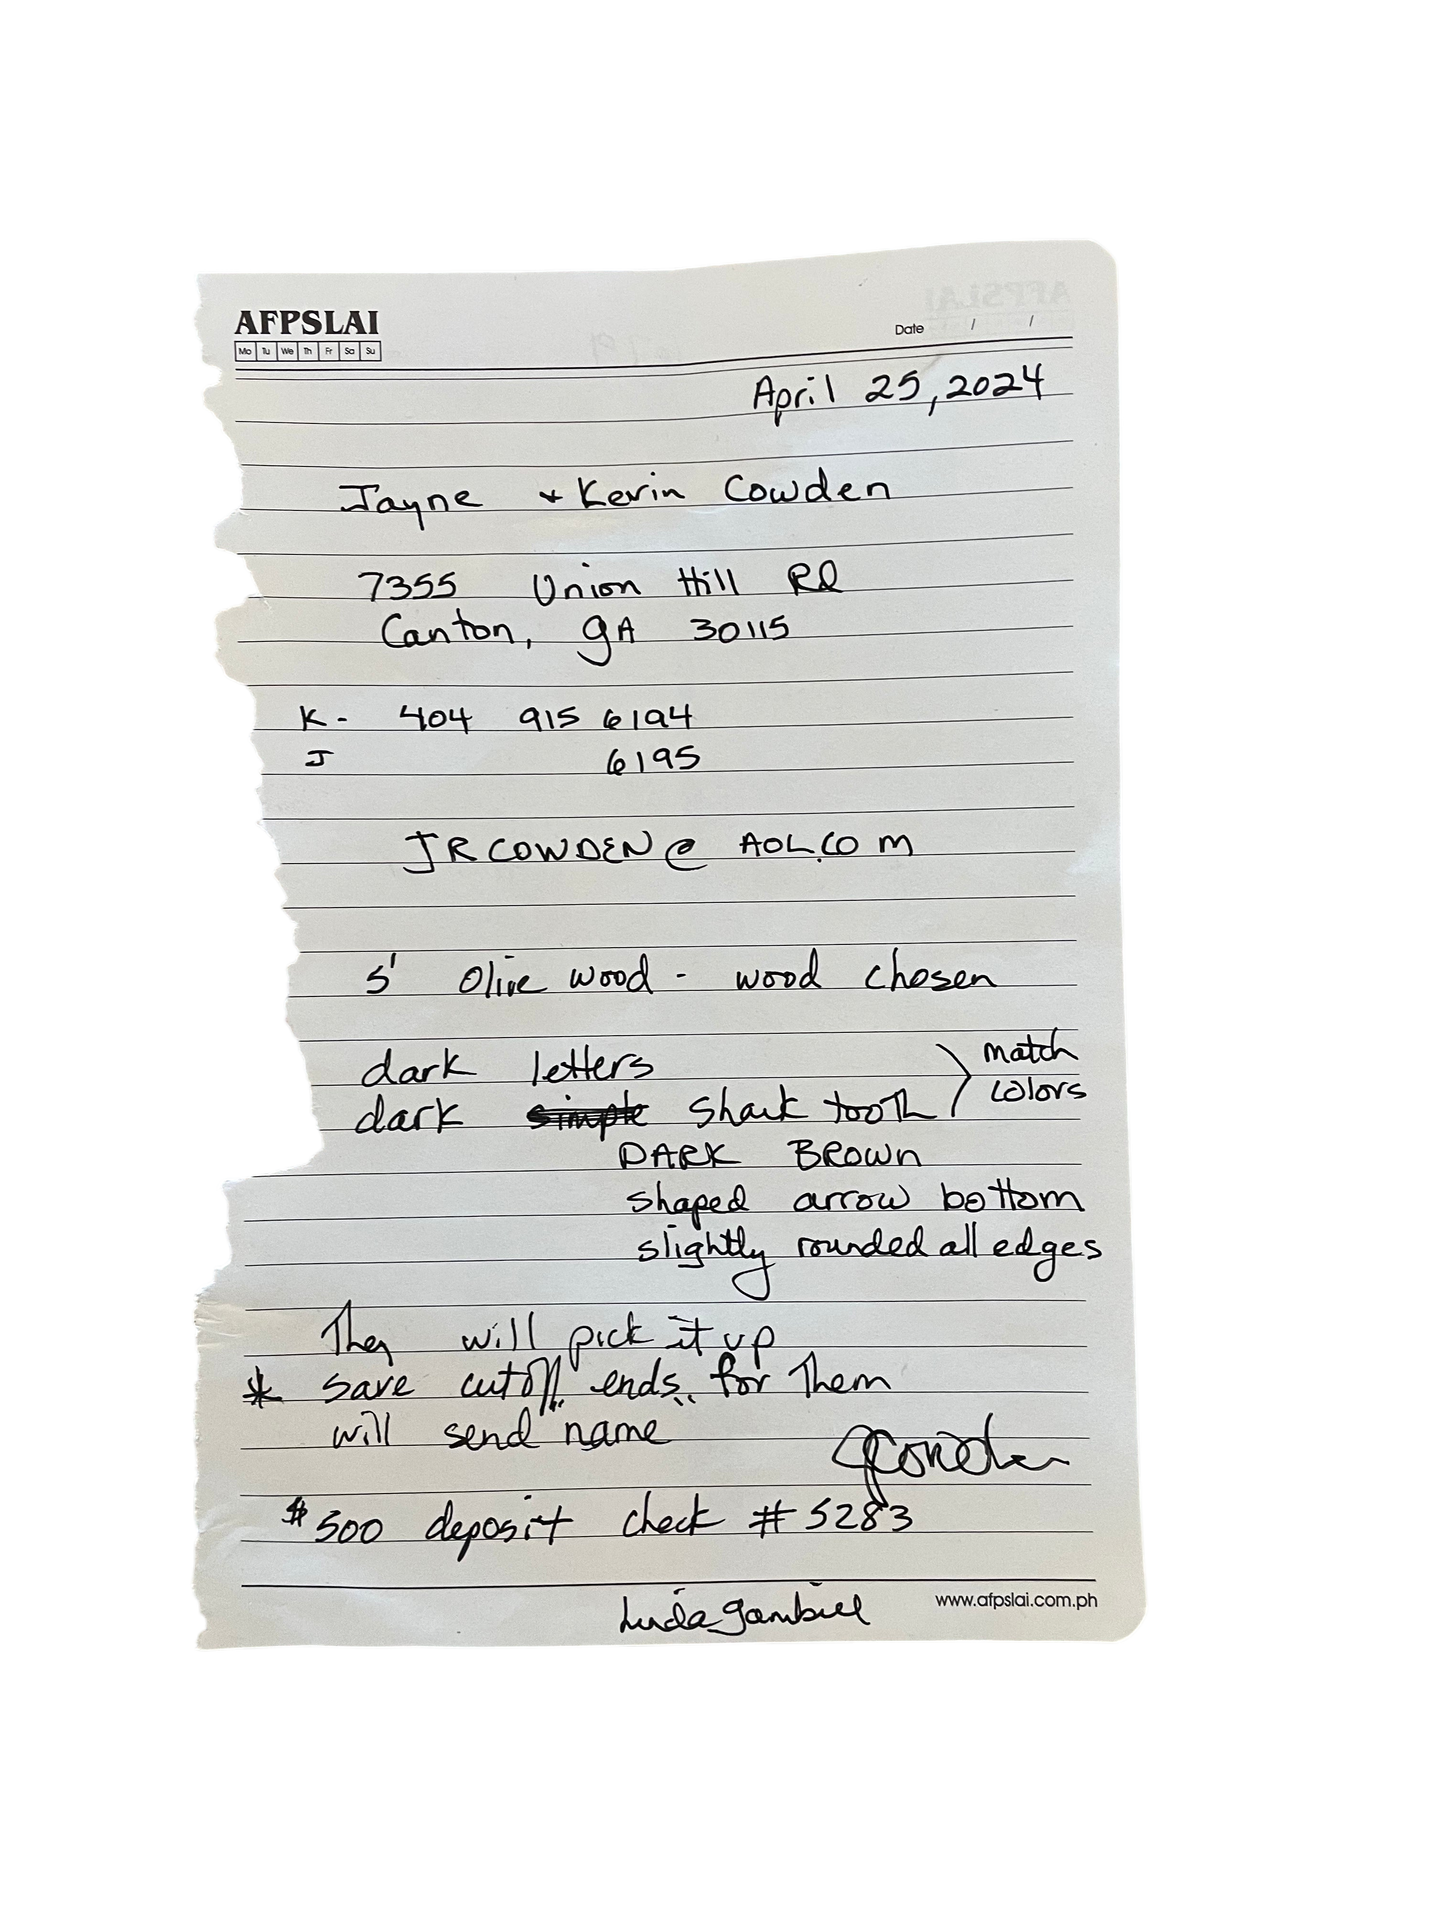 AFPSLAI
Mo Tu We Th Fr Sa Su
Date / /
April 25, 2024
Jayne + Kevin Cowden
7355 Union Hill Rd
Canton, GA 30115
K - 404 915 6194
J 6195
JRCOWDEN@AOL.COM
5' Olive wood - wood chosen
dark letters
dark simple shark tooth
match
colors
DARK BROWN
shaped arrow bottom
slightly rounded all edges
They will pick it up
* save cutoff "ends" for them
will send "name"
JCowden
$500 deposit check # 5283
Linda Gambill
www.afpslai.com.ph